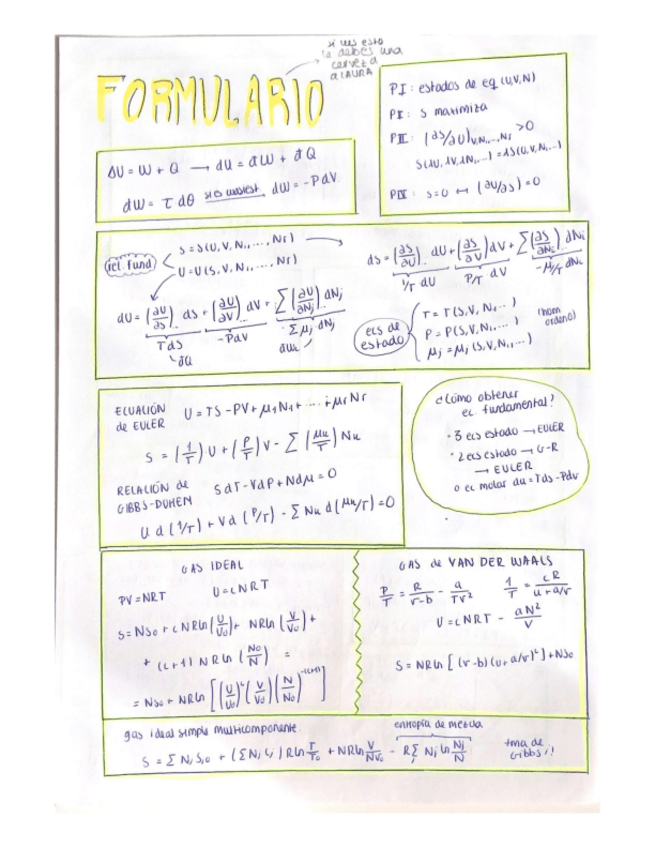 si lees esto
le debes una
cerveza
a LAURA
FORMULARIO
PI: estados de eq (U,V,N)
PII: S maximiza
PIII: (∂S/∂U)V,N1,...,Nr >0
S(λU, λV, λN1,...) = λS(U,V,N1,...)
PIV: S=0 ↔ (∂U/∂S)=0
ΔU = W + Q → dU = đW + đQ
đW = τ dθ si es cuasiest. đW = -PdV
rel. fund
S = S(U, V, N1, ..., Nr)
U = U(S, V, N1, ..., Nr)
dS = (∂S/∂U) dU + (∂S/∂V) dV + Σ(∂S/∂Ni) dNi
1/T dU P/T dV -μi/T dNi
dU = (∂U/∂S) dS + (∂U/∂V) dV + Σ(∂U/∂Nj) dNj
TdS -PdV Σμj dNj
đQ đWu
ecs de estado
T = T(S,V,N1,...)
P = P(S,V,N1,...)
μj = μj(S,V,N1,...)
(hom orden 0)
ECUACIÓN de EULER U = TS - PV + μ1N1 + .... + μrNr
S = (1/T)·U + (P/T)V - Σ(μk/T)Nk
RELACIÓN de GIBBS-DUHEM SdT - VdP + Ndμ = 0
U d(1/T) + V d(P/T) - Σ Nk d(μk/T) = 0
¿Cómo obtener
ec fundamental?
· 3 ecs estado → EULER
· 2 ecs estado → G-R
→ EULER
o ec molar du = Tds - Pdv
GAS IDEAL
PV = NRT U = cNRT
S = Ns0 + cNRln(U/U0) + NRln(V/V0) +
+ (c+1) NRln(N0/N) =
= Ns0 + NRln[(U/U0)^c (V/V0)(N/N0)^-(c+1)]
GAS de VAN DER WAALS
P/T = R/(v-b) - a/Tv² 1/T = cR/(u+a/v)
U = cNRT - aN²/V
S = NRln[(v-b)(u+a/v)^c] + Ns0
gas ideal simple multicomponente
entropía de mezcla
S = Σ Nj Sj0 + (Σ Nj cj) Rln T/T0 + NRln V/NV0 - R Σ Nj ln Nj/N
tma de
Gibbs¡!